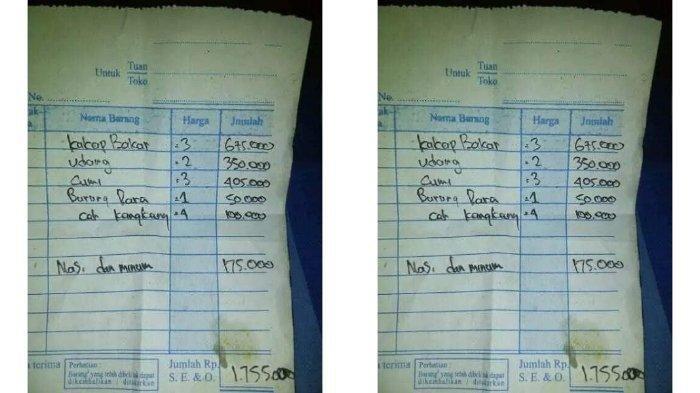 Tuan
Untuk
Toko
No.
ak-
a Nama Barang Harga Jumlah
Kakap Bakar =3 675.000
Udang =2 350.000
Cumi =3 405.000
Burung Dara =1 50.000
cah kangkung =4 100.000
Nasi dan minum 175.000
a terima
Perhatian
Barang² yang telah dibeli tak dapat
dikembalikan / ditukarkan
Jumlah Rp.
S. E. & O.
1.755.000
Tuan
Untuk
Toko
No.
ak-
a Nama Barang Harga Jumlah
Kakap Bakar =3 675.000
Udang =2 350.000
Cumi =3 405.000
Burung Dara =1 50.000
cah kangkung =4 100.000
Nasi dan minum 175.000
a terima
Perhatian
Barang² yang telah dibeli tak dapat
dikembalikan / ditukarkan
Jumlah Rp.
S. E. & O.
1.755.000